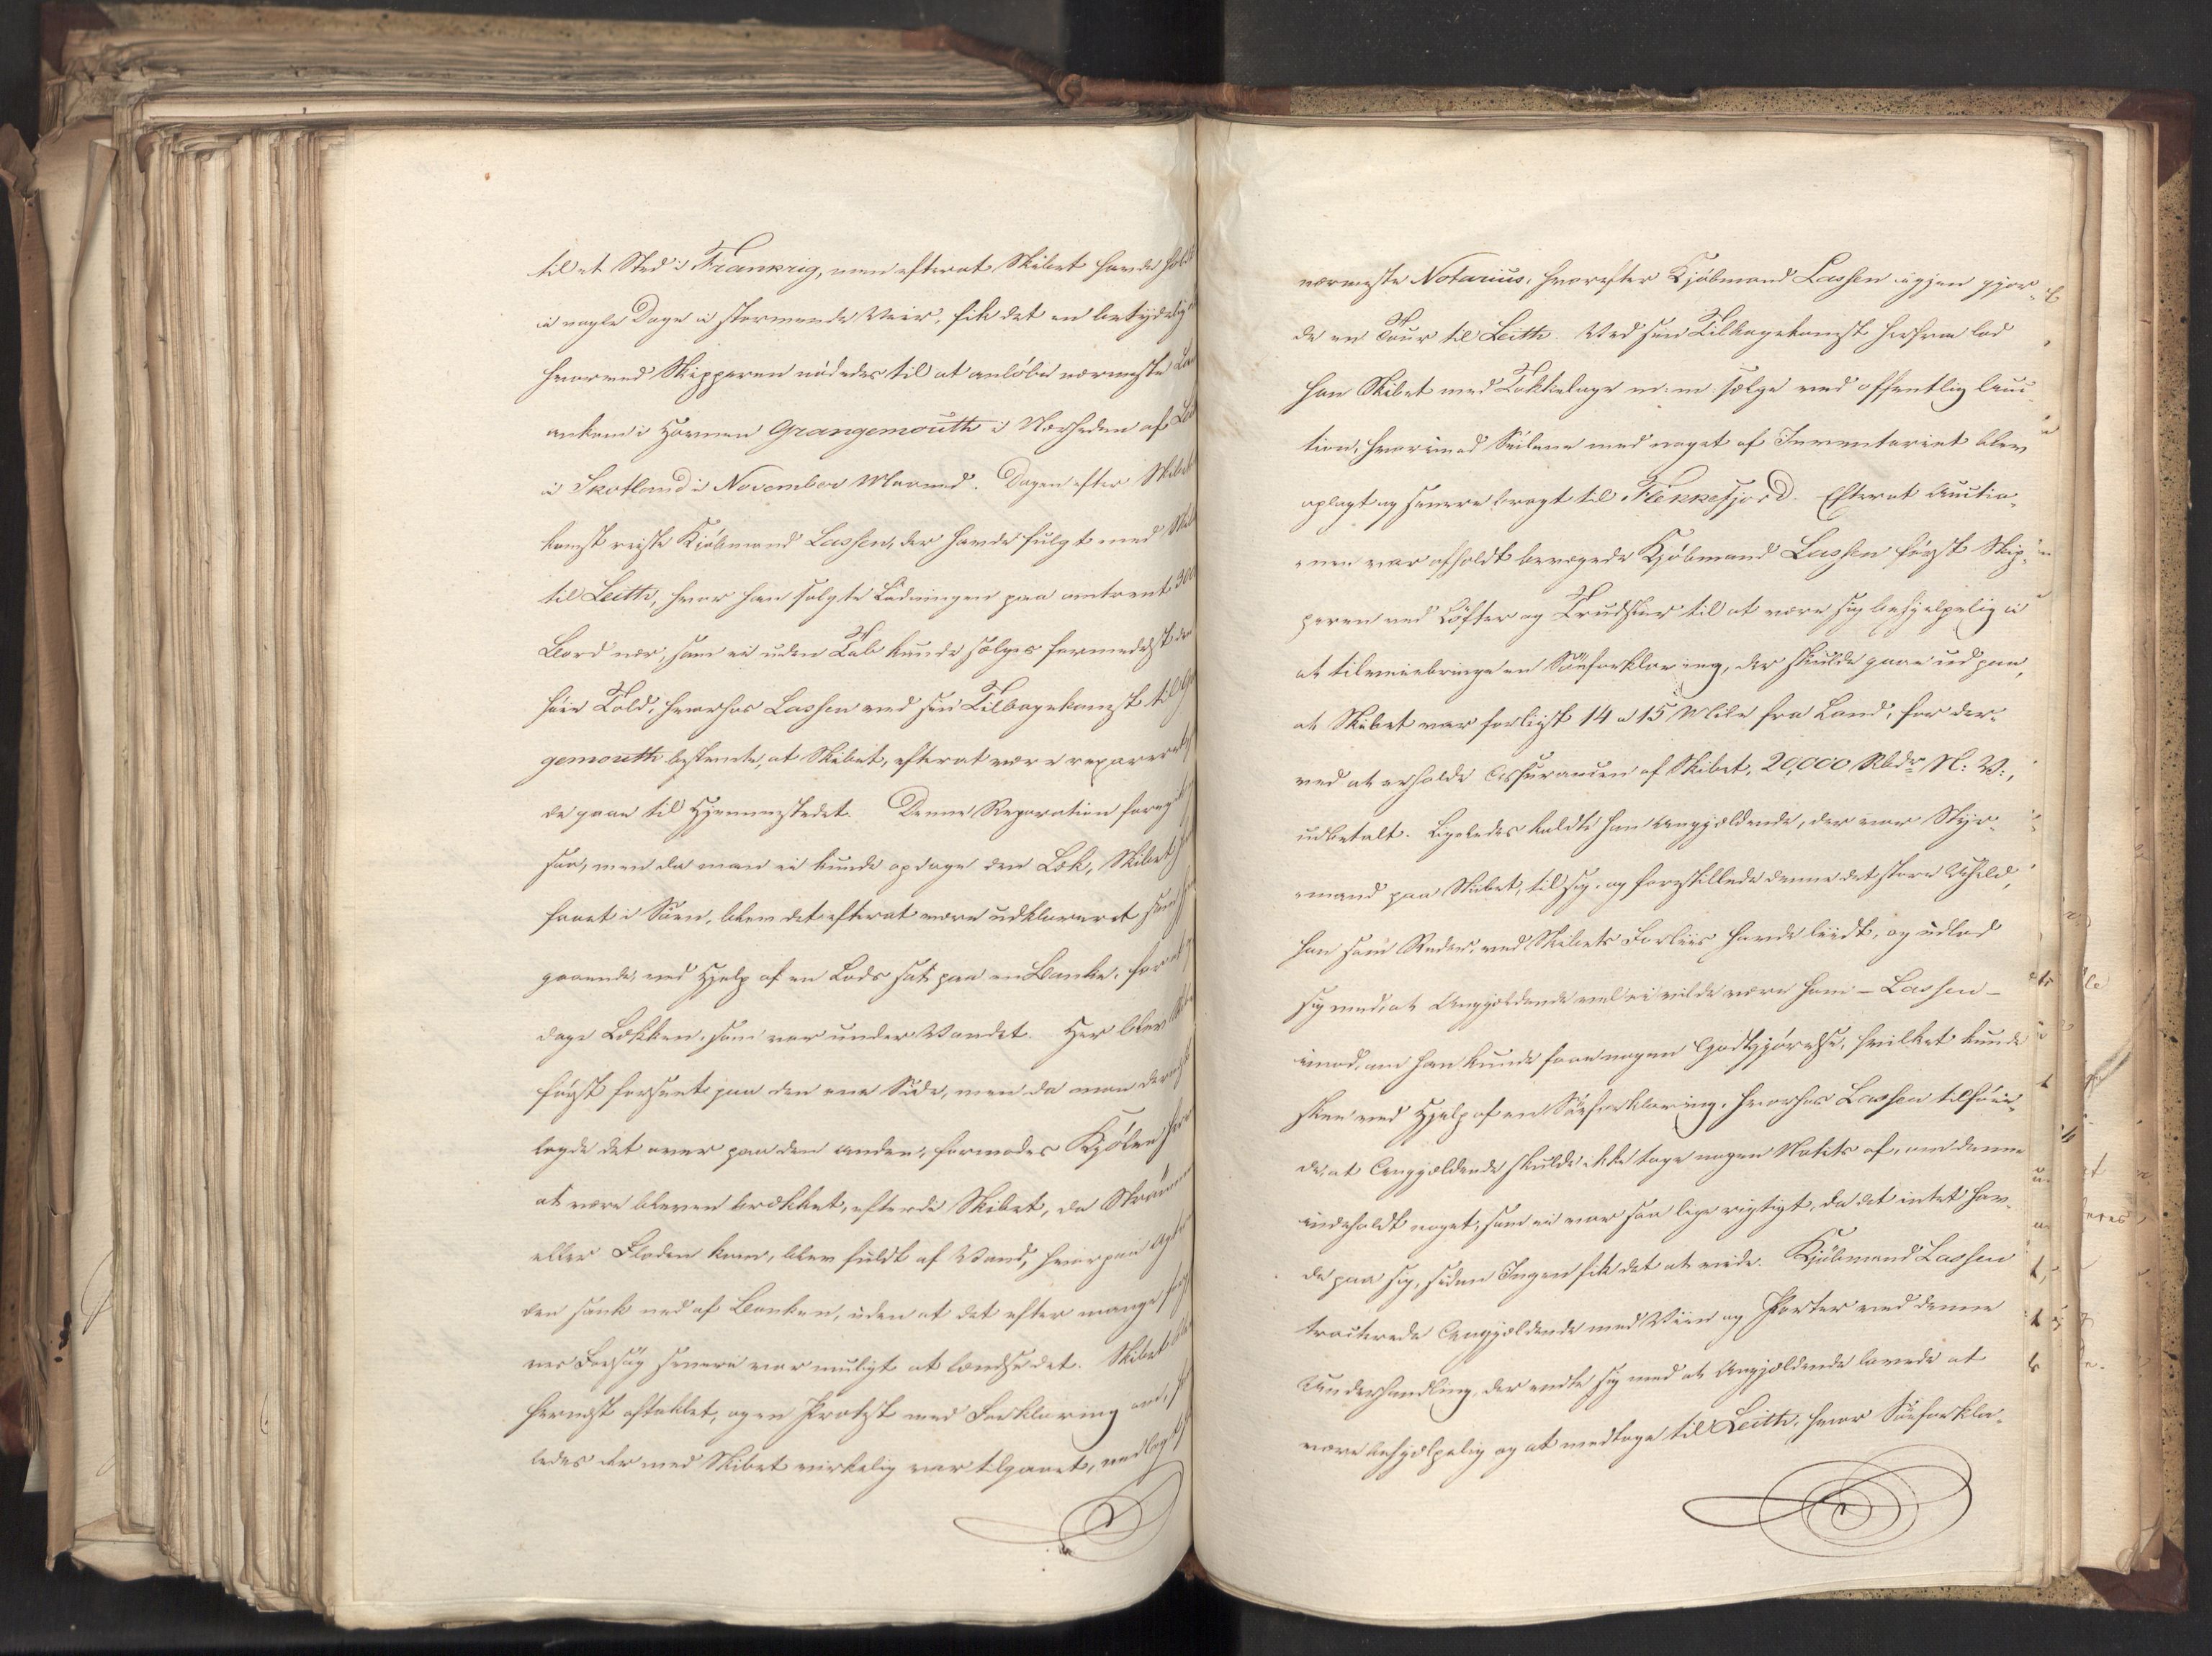 til et Sted i Frankrig, men efterat Skibet havde holdt
i nogle Dage i stormende Veir, fik det en betydelig
hvormed Skipperen nödedes til at anlöbe nærmeste
ankom i Havnen Grangemouth i Nærheden af
i Skotland i November Maaned. Dagen efter Skibet
komst reiste Kjöbmand Lassen, der havde fulgt med
til Leith, hvor han solgte Ladningen paa omtrent 300
Bord nær, som ei uden Tab kunde sælges formedelst den
höie Told, hvorhos Lassen ved sin Tilbagekomst til
gemouth bestemte, at Skibet, efterat være repareret
de gaae til Hjemmestedet. Denne Reparation foregik
saa, men da man ei kunde opdage den Læk, Skibet
faaet i Söen, blev det efterat være udklareret
gaaende, ved Hjelp af en Lods sat paa en Banke, for at
dage Lækken, som var under Vandet. Her blev
först forsent paa den ene Side, men da man
lagde det over paa den anden, formodes Kjölen
at være bleven brækket, efterdi Skibet, da Strömmen
eller Floden kom, blev fuldt af Vand, hvorpaa
den sank ned af Banken, uden at det efter mange
nes Forsög senere var muligt at lændse det. Skibet
hernæst aftaklet, og en Protest med Forklaring om,
ledes det med Skibet virkelig var tilgaaet,
nærmeste Notarius, hvorefter Kjöbmand Lassen igjen gjor-
de en Tour til Leith. Ved sin Tilbagekomst herfra lod
han Skibet med Takkelage m: m: sælge ved offentlig Auc-
tion, hvorimod Seilene med noget af Inventariet blev
oplagt og senere bragt til Flekkefjord. Efterat Auctio-
nen var afholdt bevægede Kjöbmand Lassen först Skip-
peren ved Löfter og Trudsler til at være sig behjelpelig i
at tilveiebringe en Söeforklaring, der skulde gaae ud paa,
at Skibet var forliist 14 a 15 Mile fra Land, for der-
ved at erholde Assurancen af Skibet, 20,000 Rbdr N: V:,
udbetalt. Ligeledes kaldte han Angjældende, der var Styr-
mand paa Skibet, til sig, og forestillede denne det store Uheld,
han som Reder, ved Skibets Forliis havde liidt, og udlod
sig med, at Angjældende vel ei vilde være ham - Lassen -
imod, om han kunde faae nogen Godtgjörelse, hvilket kunde
skee ved Hjelp af en Söeforklaring, hvorhos Lassen tilföie-
de, at Angjældende skulde ikke tage nogen Notits af, om denne
indeholdt noget, som ei var saa lige rigtigt, da det intet hav-
de paa sig, siden Ingen fik det at vide. Kjöbmand Lassen
tracterede Angjældende med Viin og Porter ved denne
Underhandling, der endte sig med at Angjældende lovede at
være behjælpelig og at medtage til Leith, hvor Söeforkla-